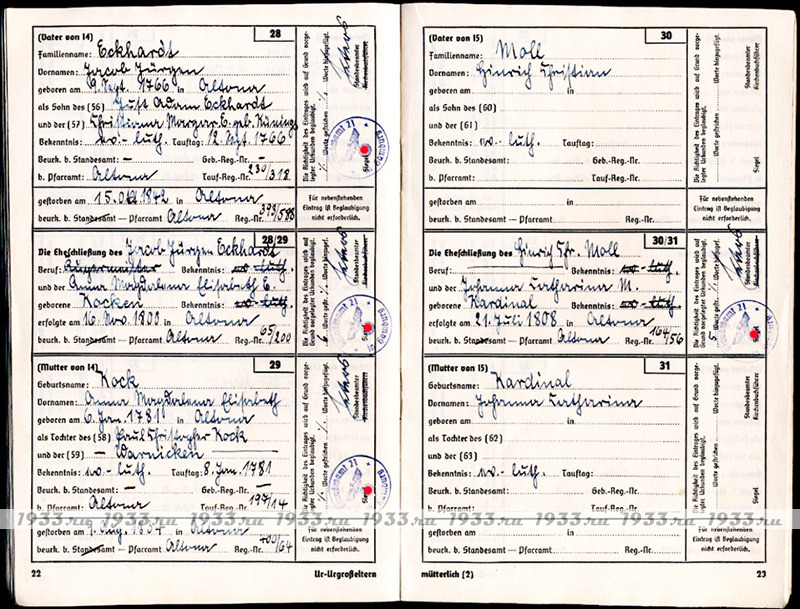 (Vater von 14) 28
Familienname: Eckhardt
Vornamen: Jacob Jürgen
geboren am 9. Sept. 1766 in Altona
als Sohn des (56) Just Adam Eckhardt
und der (57) Christiana Margar. E. geb. Küning
Bekenntnis: ev.- luth. Tauftag: 12. Spt. 1766
Beurk. b. Standesamt: — Geb.-Reg.-Nr. —
b. Pfarramt: Altona Tauf-Reg.-Nr. 230/318
gestorben am 15. Okt. 1842 in Altona
beurk. b. Standesamt — Pfarramt Altona Reg.-Nr. 393/588
Die Richtigkeit des Eintrages wird auf Grund vorgelegter Urkunden beglaubigt.
Worte gestrichen Worte hinzugefügt.
Standesbeamter
Kirchenbuchführer
Siegel
Für nebenstehenden
Eintrag ist Beglaubigung
nicht erforderlich.
28/29
Die Eheschließung des Jacob Jürgen Eckhardt
Beruf: Bürgermeister Bekenntnis: ev-luth.
und der Anna Magdalena Elisabeth E.
geborene Kocken Bekenntnis: ev-luth.
erfolgte am 16. Nov. 1800 in Altona
beurk. b. Standesamt — Pfarramt Altona Reg.-Nr. 65/200
(Mutter von 14) 29
Geburtsname: Kock
Vornamen: Anna Magdalena Elisabeth
geboren am 6. Jan. 1781 in Altona
als Tochter des (58) Paul Christopher Kock
und der (59) — Warnicken
Bekenntnis: ev-luth. Tauftag: 8. Jan. 1781
Beurk. b. Standesamt: — Geb.-Reg.-Nr. —
b. Pfarramt: Altona Tauf-Reg.-Nr. 197/14
gestorben am 1. Aug. in Altona
beurk. b. Standesamt — Pfarramt Altona Reg.-Nr. 700/64
Für nebenstehenden
Eintrag ist Beglaubigung
nicht erforderlich.
22 Ur-Urgroßeltern
(Vater von 15) 30
Familienname: Moll
Vornamen: Hinrich Christian
geboren am in
als Sohn des (60)
und der (61)
Bekenntnis: ev.- luth. Tauftag:
Beurk. b. Standesamt: Geb.-Reg.-Nr.
b. Pfarramt: Tauf-Reg.-Nr.
gestorben am in
beurk. b. Standesamt — Pfarramt Reg.-Nr.
Die Richtigkeit des Eintrages wird auf Grund vorgelegter Urkunden beglaubigt.
Worte gestrichen Worte hinzugefügt.
Standesbeamter
Kirchenbuchführer
Siegel
Für nebenstehenden
Eintrag ist Beglaubigung
nicht erforderlich.
30/31
Die Eheschließung des Hinrich Chr. Moll
Beruf: Bekenntnis: ev-luth.
und der Johanna Catharina M.
geborene Kardinal Bekenntnis: ev-luth.
erfolgte am 21. Juli 1808 in Altona
beurk. b. Standesamt — Pfarramt Altona Reg.-Nr. 164/56
(Mutter von 15) 31
Geburtsname: Kardinal
Vornamen: Johanna Catharina
geboren am in
als Tochter des (62)
und der (63)
Bekenntnis: ev.- luth. Tauftag:
Beurk. b. Standesamt: Geb.-Reg.-Nr.
b. Pfarramt: Tauf-Reg.-Nr.
gestorben am in
beurk. b. Standesamt — Pfarramt Reg.-Nr.
Für nebenstehenden
Eintrag ist Beglaubigung
nicht erforderlich.
mütterlich (2) 23
1933.ru 1933.ru 1933.ru 1933.ru 1933.ru 1933.ru